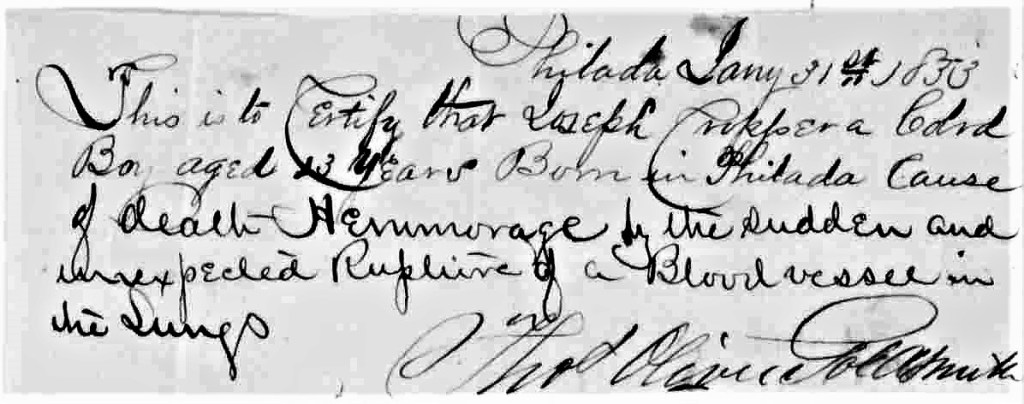 Philada Jany 31st 1853
This is to Certify that Joseph a Cold
Boy aged 13 Years Born in Philada Cause
of death Hemmorage by the sudden and
unexpected Rupture of a Blood vessel in
the Lungs
Thos Goldsmith